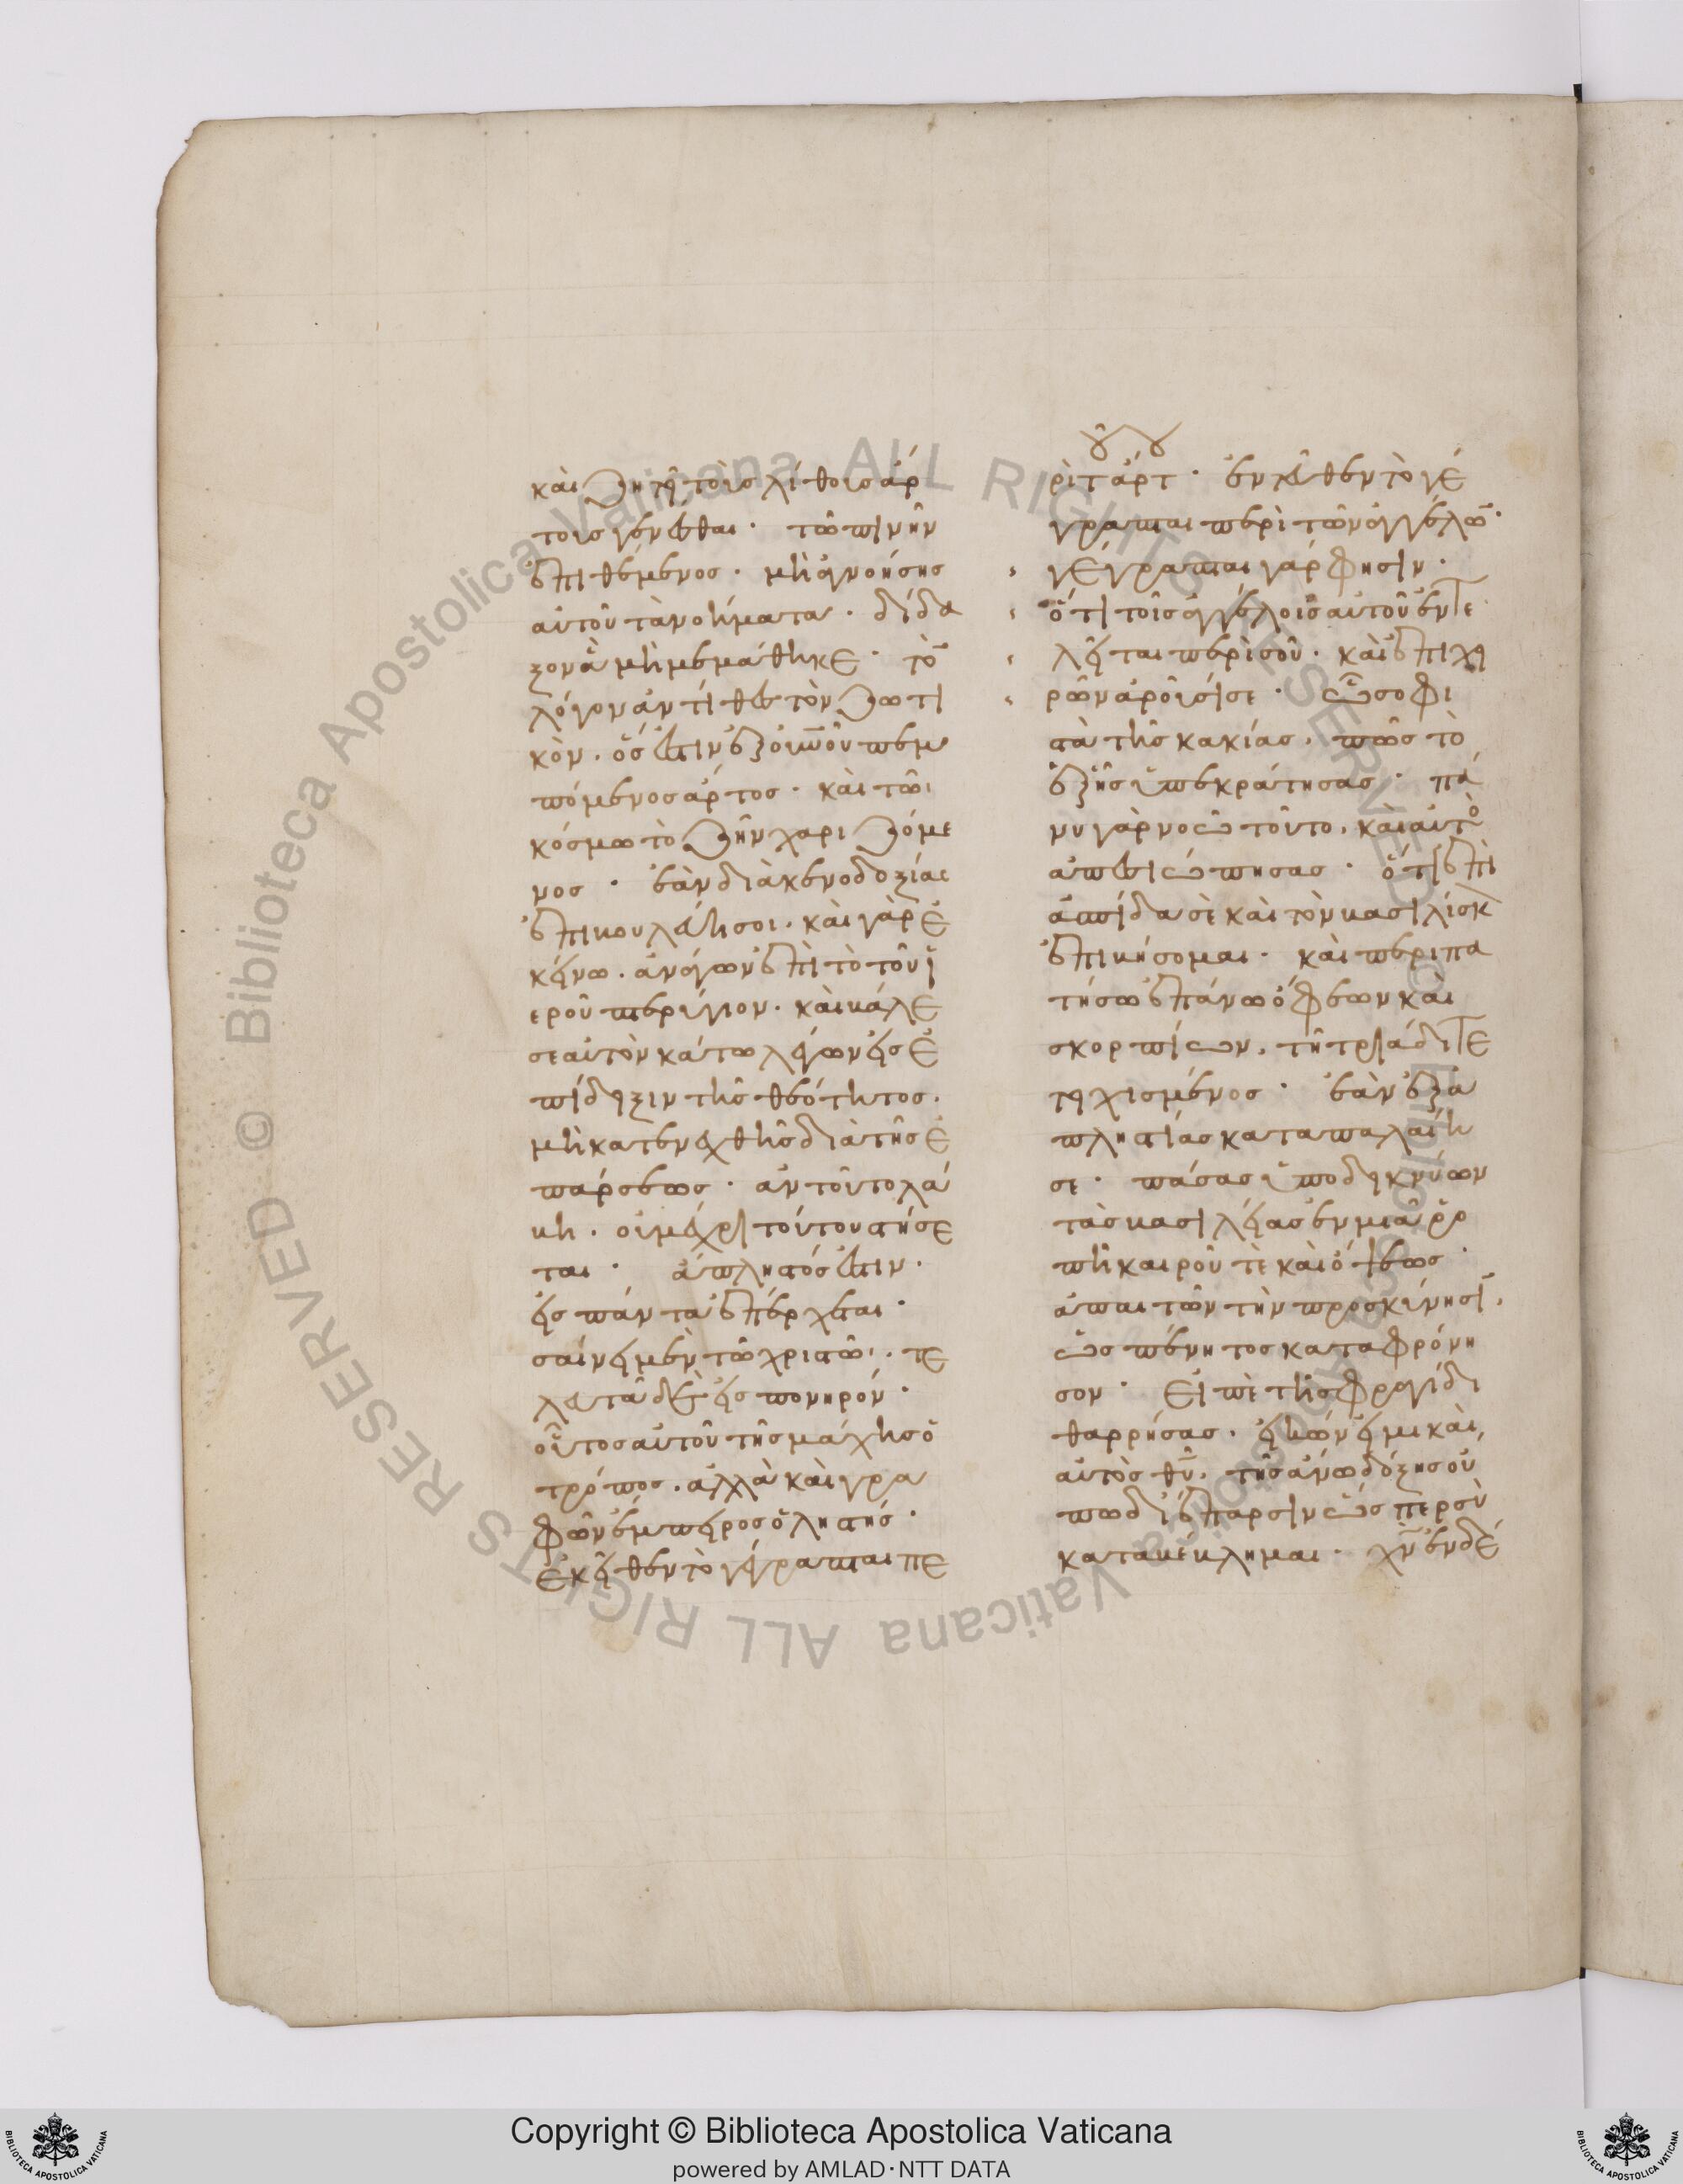 καὶ ζητῆ τοὺς λίθους ἄρ
τους γενέσθαι· τῶ πινῆν
ἐπιθέμενος· μὴ ἀγνοήσης
αὐτοῦ τὰ νοήματα· δίδα
ξον ἃ μὴ μεμάθηκε· τὸ̅
λόγον ἀντίθες τὸν ζωτι
κὸν. ὅς ἐστιν ἐξ οὐ̅νοῦ πεμ
πόμενος ἄρτος· καὶ τῶι
κόσμω τὸ ζῆν χαριζόμε
νος· ἐὰν διὰ κενοδοξίας
ἐπιβουλεύη σοι. καὶ γὰρ ἐ
κείνω. ἀναγων ἐπὶ τὸ τοῦ ἱ
εροῦ πτερύγιον. καὶ βάλε
σεαυτὸν κάτω λέγων εἰς ἐ
πίδειξιν τῆς θεότητος.
μὴ κατενεχθῆς διὰ τῆς ἐ
πάρσεως· ἂν τοῦτο λά
βη. οὐ μέχρι τούτου στήσε
ται· ἄπληστός ἐστιν.
εἰς πάντα ἐπέρχεται·
σαίνει μὲν τῶ χριστῶι. τε
λευτᾶ δὲ εἰς πονηρόν·
οὗτος αὐτοῦ τῆς μάχης ὁ
τρόπος. ἀλλὰ καὶ γρα
φῶν ἔμπειρος ὁ ληστής·
ἐκεῖθεν τὸ γέγραπται πε
ρὶ τ ἄρτ· ἐντεῦθεν τὸ γέ
γραπται περὶ τῶν ἀγγέλω̅·
γέγραπται γάρ φησιν·
ὅτι τοῖς ἀγγέλοις αὐτοῦ ἐντε
λεῖται περὶ σοῦ. καὶ ἐπὶ χει
ρῶν ἀροῦσί σε· ὦ σοφι
στὰ τῆς κακίας. πῶς τὸ
ἑξῆς ὑπεκράτησας· πά
νυ γὰρ νοῶ τοῦτο. καὶ αὐτὸ
ἀπεσιώπησας· ὅτι ἐπὶ
ἀσπίδα σὲ καὶ τὸν βασιλίσκ
ἐπιβήσομαι· καὶ περιπα
τήσω ἐπάνω ὄφεων καὶ
σκορπίων, τῆ τριάδι τε
τειχισμένος· ἐὰν ἐξ ἀ
πληστίας καταπαλαίη
σε· πάσας ὑποδεικνύων
τὰς βασιλείας ἐν μιᾶ ῥο
πῆ καιροῦ τὲ καὶ ὄψεως·
ἀπαιτῶν τὴν προσκύνησι̅.
ὡς πένητος καταφρόνη
σον· εἰπὲ τῆ σφραγίδι
θαρρήσας. εἰκών εἰμι καὶ
αὐτὸς θυ̅. τῆς ἄνω δόξης οὔ
πω δι ἔπαρσιν ὡς περ σὺ
καταβέβλημαι· χν̅ ἐνδέ